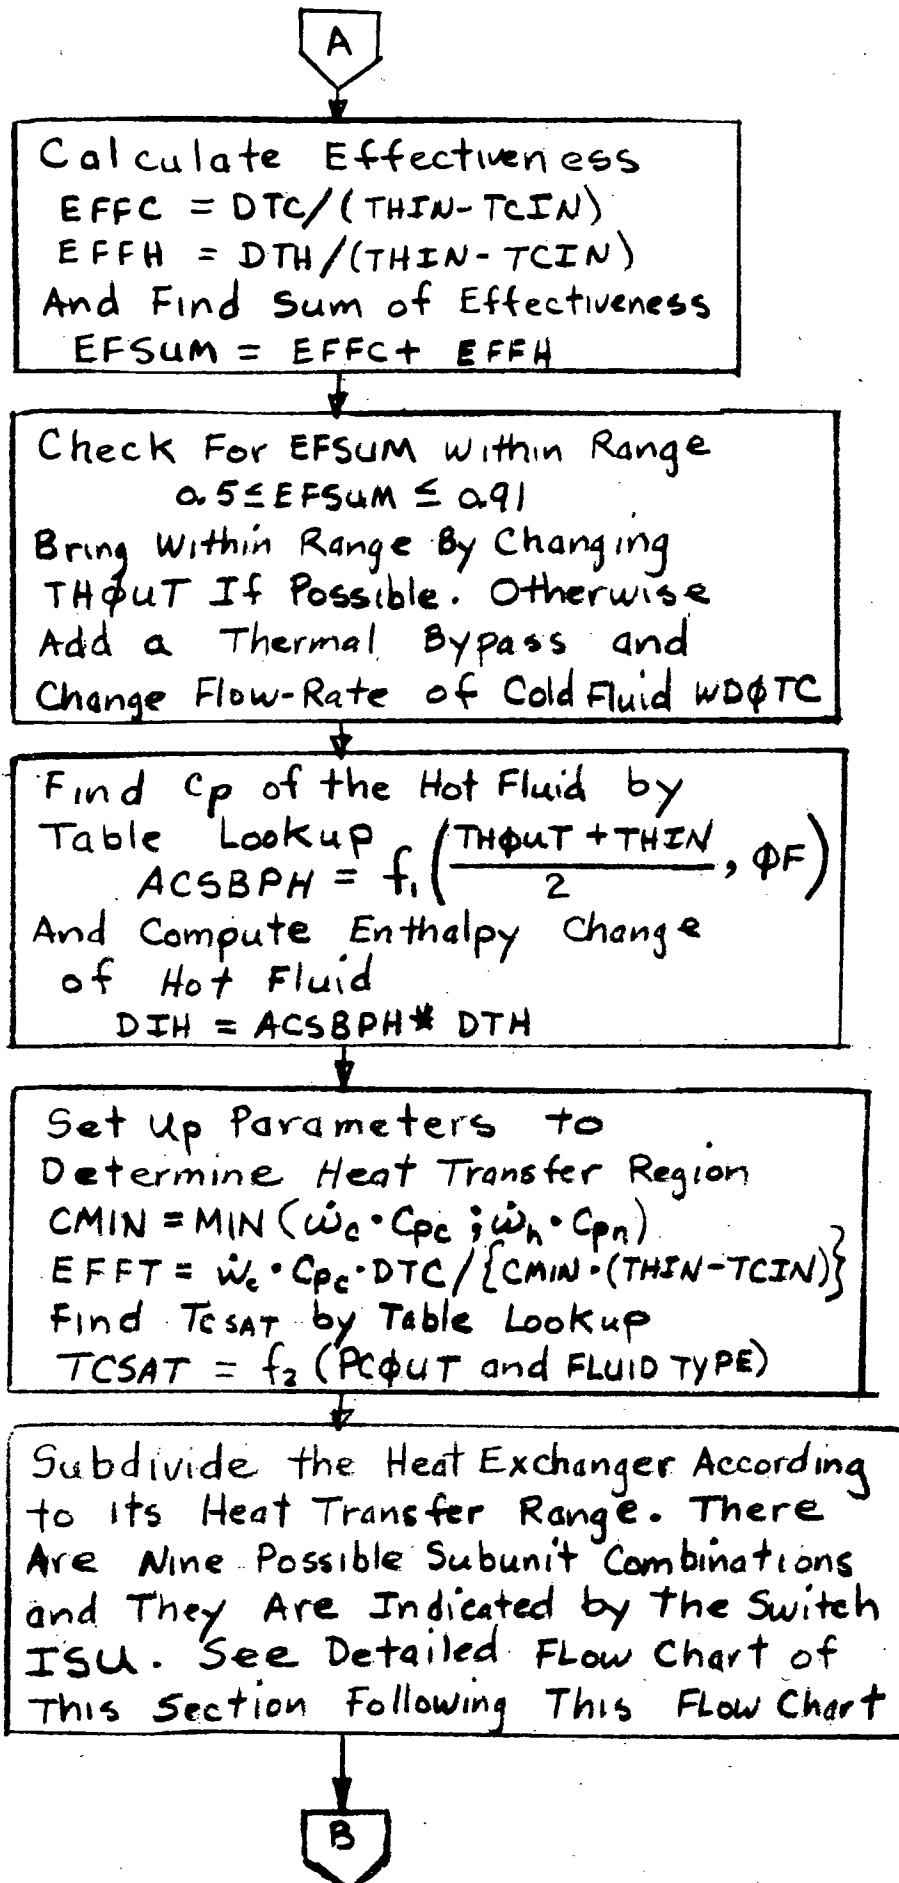 A
Calculate Effectiveness
EFFC = DTC/(THIN-TCIN)
EFFH = DTH/(THIN-TCIN)
And Find Sum of Effectiveness
EFSUM = EFFC+ EFFH
Check For EFSUM Within Range
0.5≤EFSUM ≤ 0.91
Bring Within Range By Changing
THφUT If Possible. Otherwise
Add a Thermal Bypass and
Change Flow-Rate of Cold Fluid WDφTC
Find Cp of the Hot Fluid by
Table Lookup
ACSBPH = f₁((THφUT + THIN)/2, φF)
And Compute Enthalpy Change
of Hot Fluid
DIH = ACSBPH* DTH
Set Up Parameters to
Determine Heat Transfer Region
CMIN = MIN (ẇc · Cpc ; ẇh · Cpn)
EFFT = ẇc · Cpc · DTC/{CMIN·(THIN-TCIN)}
Find TCSAT by Table Lookup
TCSAT = f₂ (PCφUT and FLUID TYPE)
Subdivide the Heat Exchanger According
to Its Heat Transfer Range. There
Are Nine Possible Subunit Combinations
and They Are Indicated by the Switch
ISU. See Detailed FLow Chart of
This Section Following This FLow Chart
B